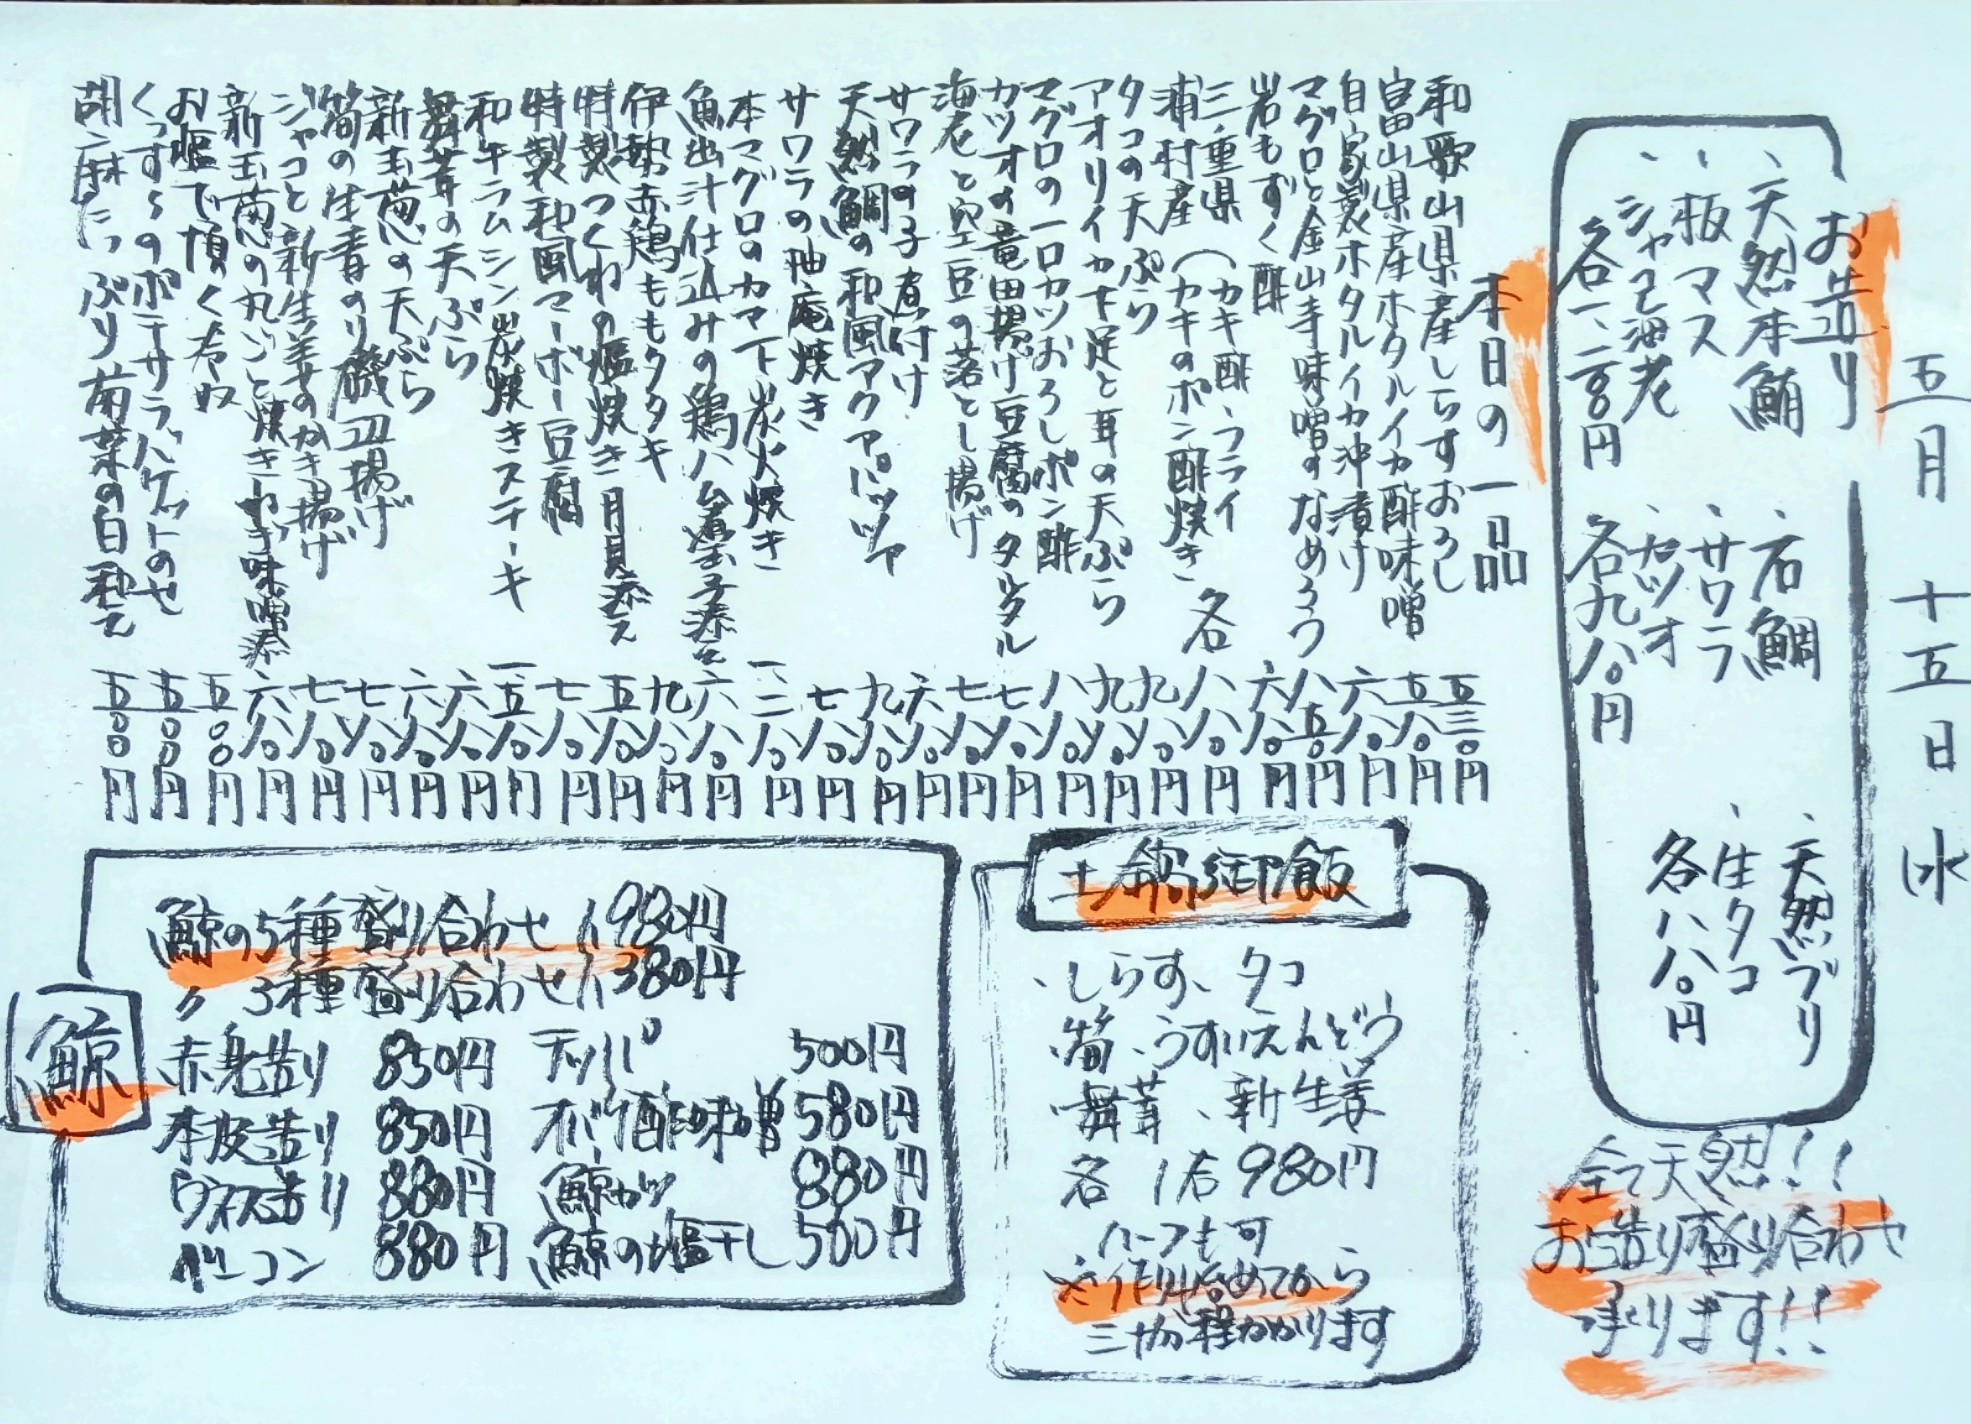 五月十五日 水
お造り
、天然本鮪
、板マス
、シャコ海老
各一、二八〇円
、石鯛
、サワラ
、カツオ
各九八〇円
、天然ブリ
、生タコ
各八八〇円
全て天然!!
お造り盛り合わせ
承ります!!
本日の一品
和歌山県産しらすおろし 五三〇円
富山県産ホタルイカ酢味噌 五八〇円
自家製ホタルイカ沖漬け 六八〇円
マグロと金山寺味噌のなめろう 八五〇円
岩もずく酢 六八〇円
三重県 (カキ酢・フライ
浦村産 (カキのポン酢焼き 各 八八〇円
タコの天ぷら 九八〇円
アオリイカ下足と耳の天ぷら 九八〇円
マグロの一口カツおろしポン酢 八八〇円
カツオの竜田揚げ豆腐のタルタル 七八〇円
海老と空豆の落とし揚げ 七八〇円
サワラの子煮付け 六八〇円
天然鯛の和風アクアパッツァ 九八〇円
サワラの柚庵焼き 七八〇円
本マグロのカマ下炭火焼き 一、二八〇円
魚出汁仕込みの鶏ハム煮玉子添え 六八〇円
伊勢赤鶏ももタタキ 九八〇円
特製つくねの塩焼き 月見添え 五八〇円
特製和風マーボー豆腐 七八〇円
和牛ラムシン炭焼きステーキ 一、五八〇円
舞茸の天ぷら 六八〇円
新玉葱の天ぷら 六八〇円
筍の生青のり磯辺揚げ 七八〇円
ジャコと新生姜のかき揚げ 七八〇円
新玉葱の丸ごと焼き ねぎ味噌添 六八〇円
お塩で頂く冷奴 五〇〇円
くっすらのポテサラバケットのせ 五〇〇円
胡麻たっぷり菊菜の白和え 五〇〇円
土鍋御飯
、しらす、タコ
、筍、うすいえんどう
、舞茸、新生姜
各 1合 980円
ハーフも可
※作り始めてから
三十分程かかります
鯨
鯨の5種盛り合わせ 1,980円
〃 3種盛り合わせ 1,380円
赤身造り 850円
本皮造り 850円
ウネス造り 880円
ベーコン 880円
テッパ 500円
オバケ酢味噌 580円
鯨カツ 880円
鯨の塩干し 500円